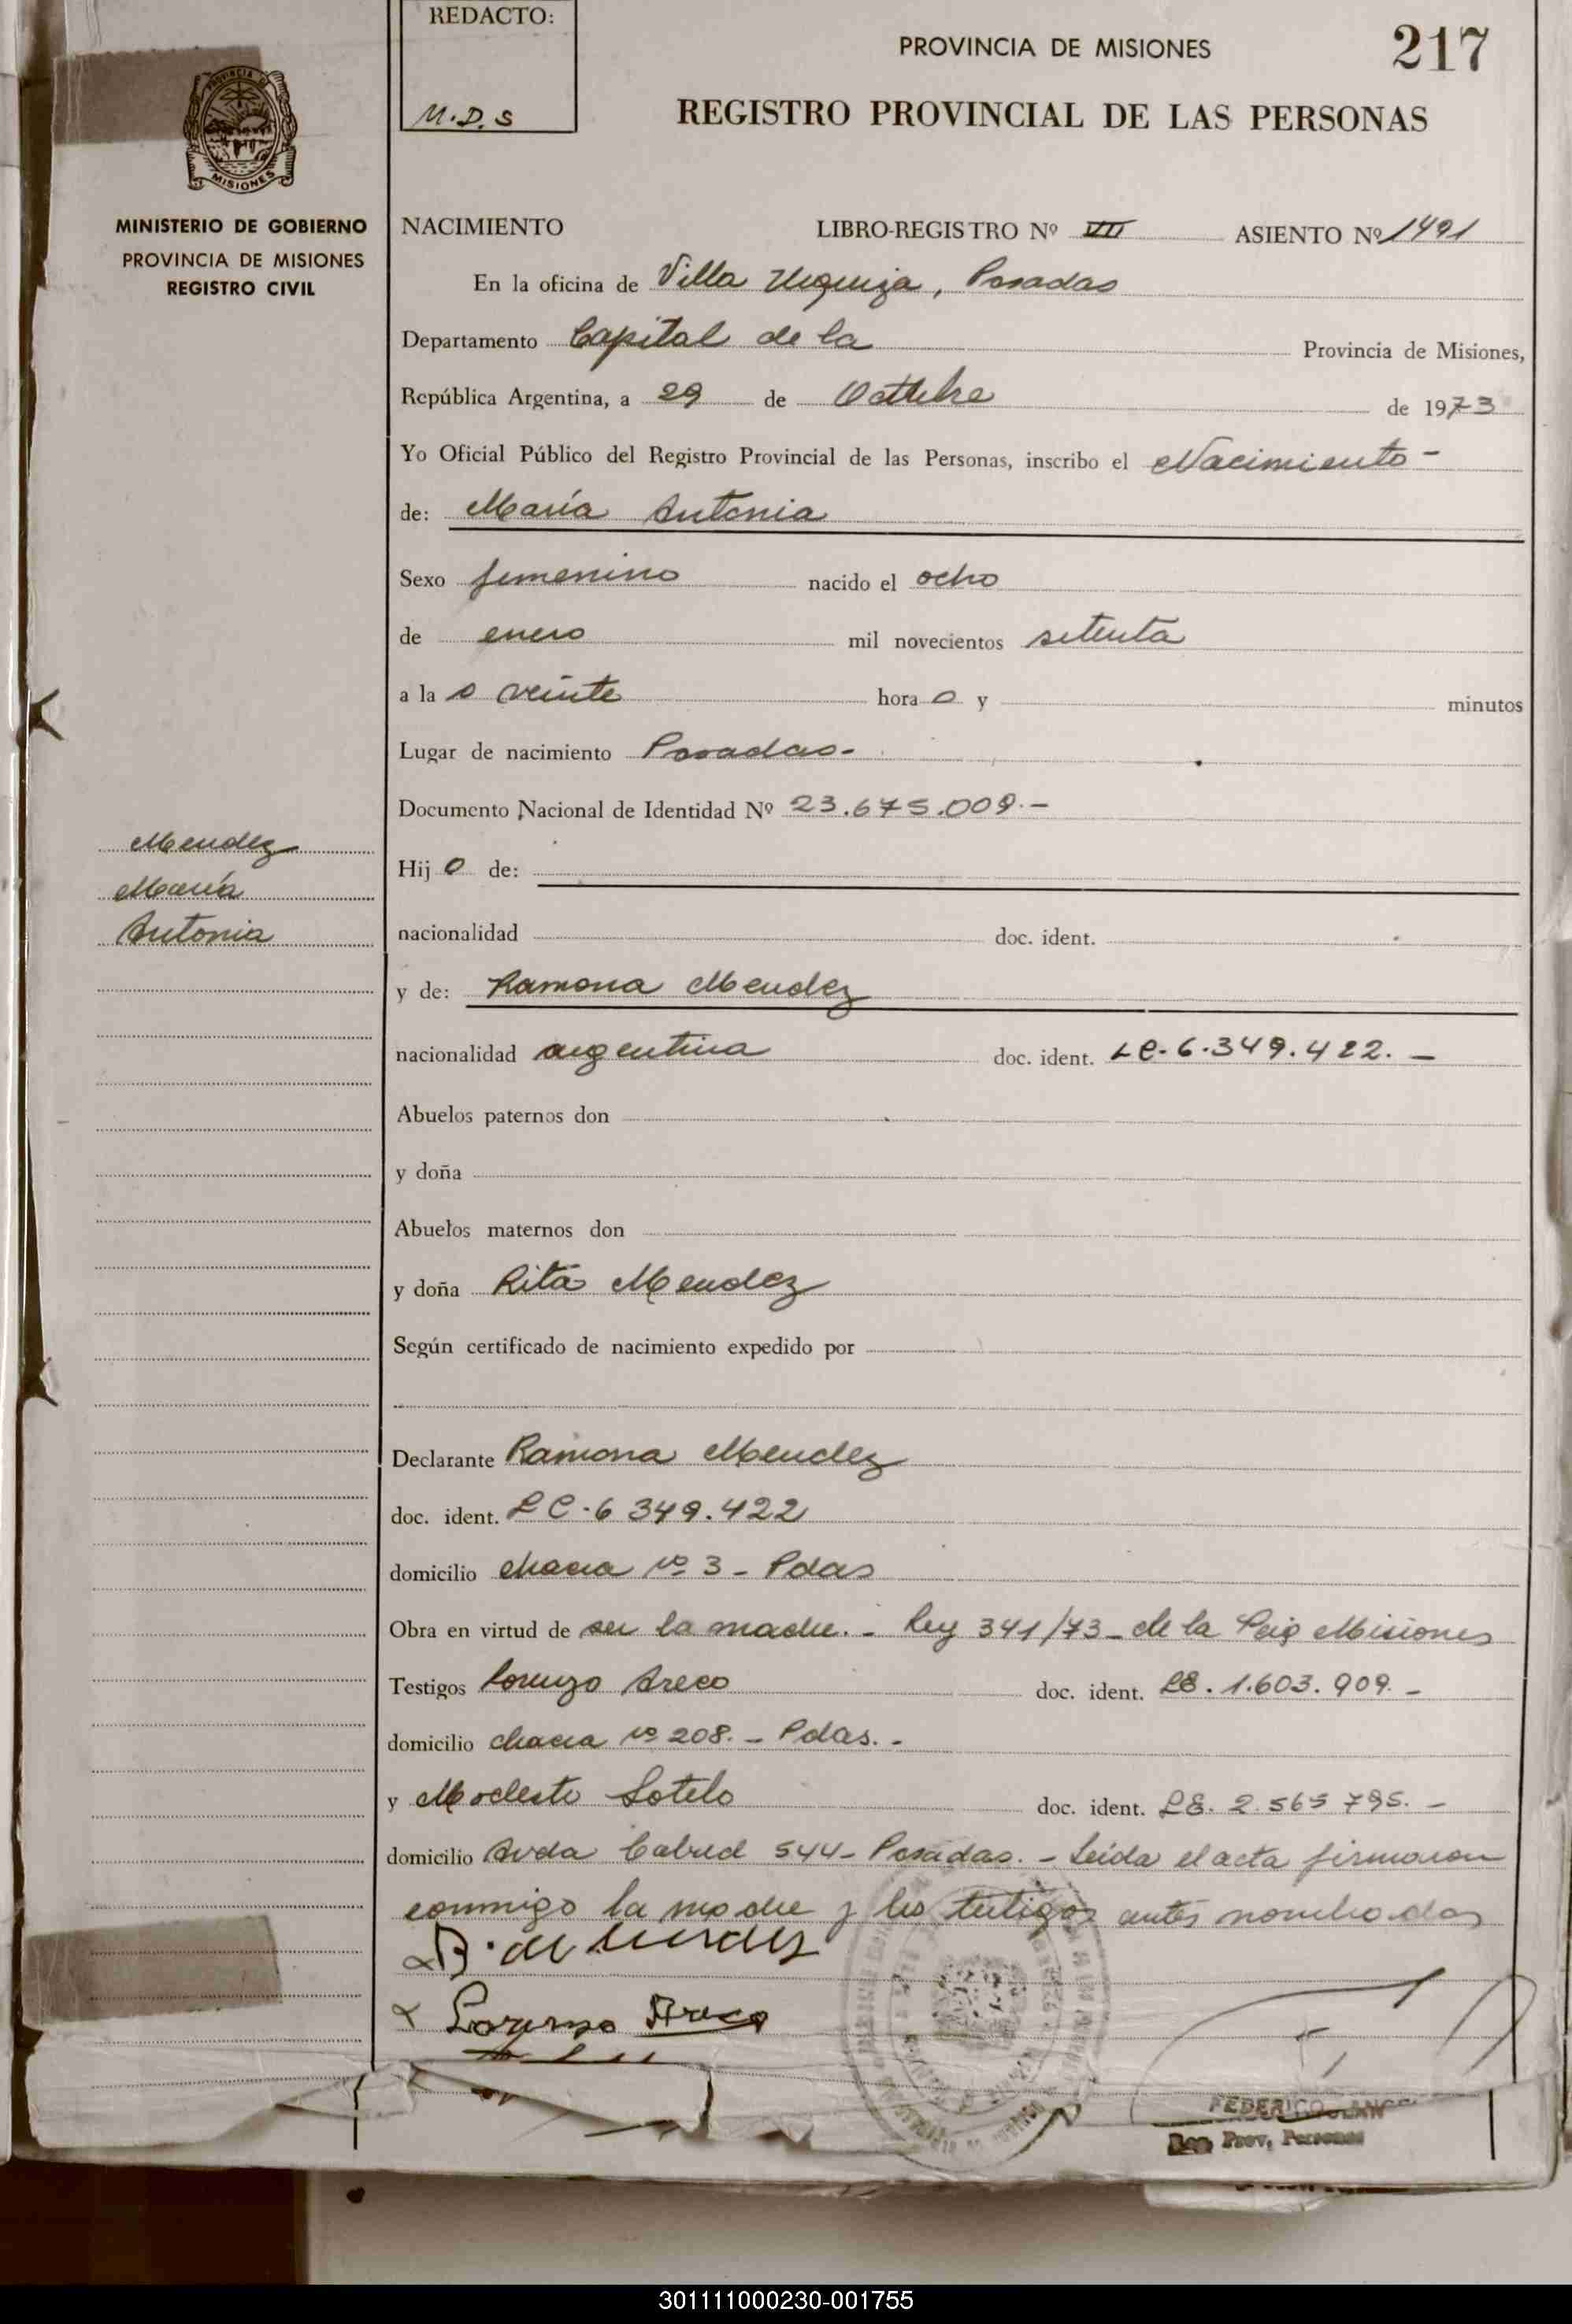 REDACTO:
M.D.S
PROVINCIA DE MISIONES
217
REGISTRO PROVINCIAL DE LAS PERSONAS
MISIONES
MINISTERIO DE GOBIERNO
PROVINCIA DE MISIONES
REGISTRO CIVIL
NACIMIENTO LIBRO-REGISTRO Nº VII ASIENTO Nº 1491
En la oficina de Villa Urquiza, Posadas
Departamento Capital de la Provincia de Misiones,
República Argentina, a 29 de Octubre de 1973
Yo Oficial Público del Registro Provincial de las Personas, inscribo el Nacimiento -
de: María Antonia
Sexo femenino nacido el ocho
de enero mil novecientos setenta
a la s veinte hora s y minutos
Lugar de nacimiento Posadas-
Documento Nacional de Identidad Nº 23.675.009.-
Mendez
María
Antonia
Hij o de:
nacionalidad doc. ident.
y de: Ramona Mendez
nacionalidad argentina doc. ident. LC. 6.349.422. -
Abuelos paternos don
y doña
Abuelos maternos don
y doña Rita Mendez
Según certificado de nacimiento expedido por
Declarante Ramona Mendez
doc. ident. LC. 6 349.422
domicilio chacra nº 3 - Pdas
Obra en virtud de ser la madre. - Ley 341/73 - de la Misiones
Testigos Lorenzo Areco doc. ident. LE. 1.603.909. -
domicilio chacra nº 208. - Pdas. -
y Modesto Sotelo doc. ident. LE. 2.565 795. -
domicilio Avda Cabred 544 - Posadas. - Leida el acta firmaron
conmigo la madre y los testigos antes nombrados
Lorenzo Areco
FEDERICO
Prov, Personas
301111000230-001755